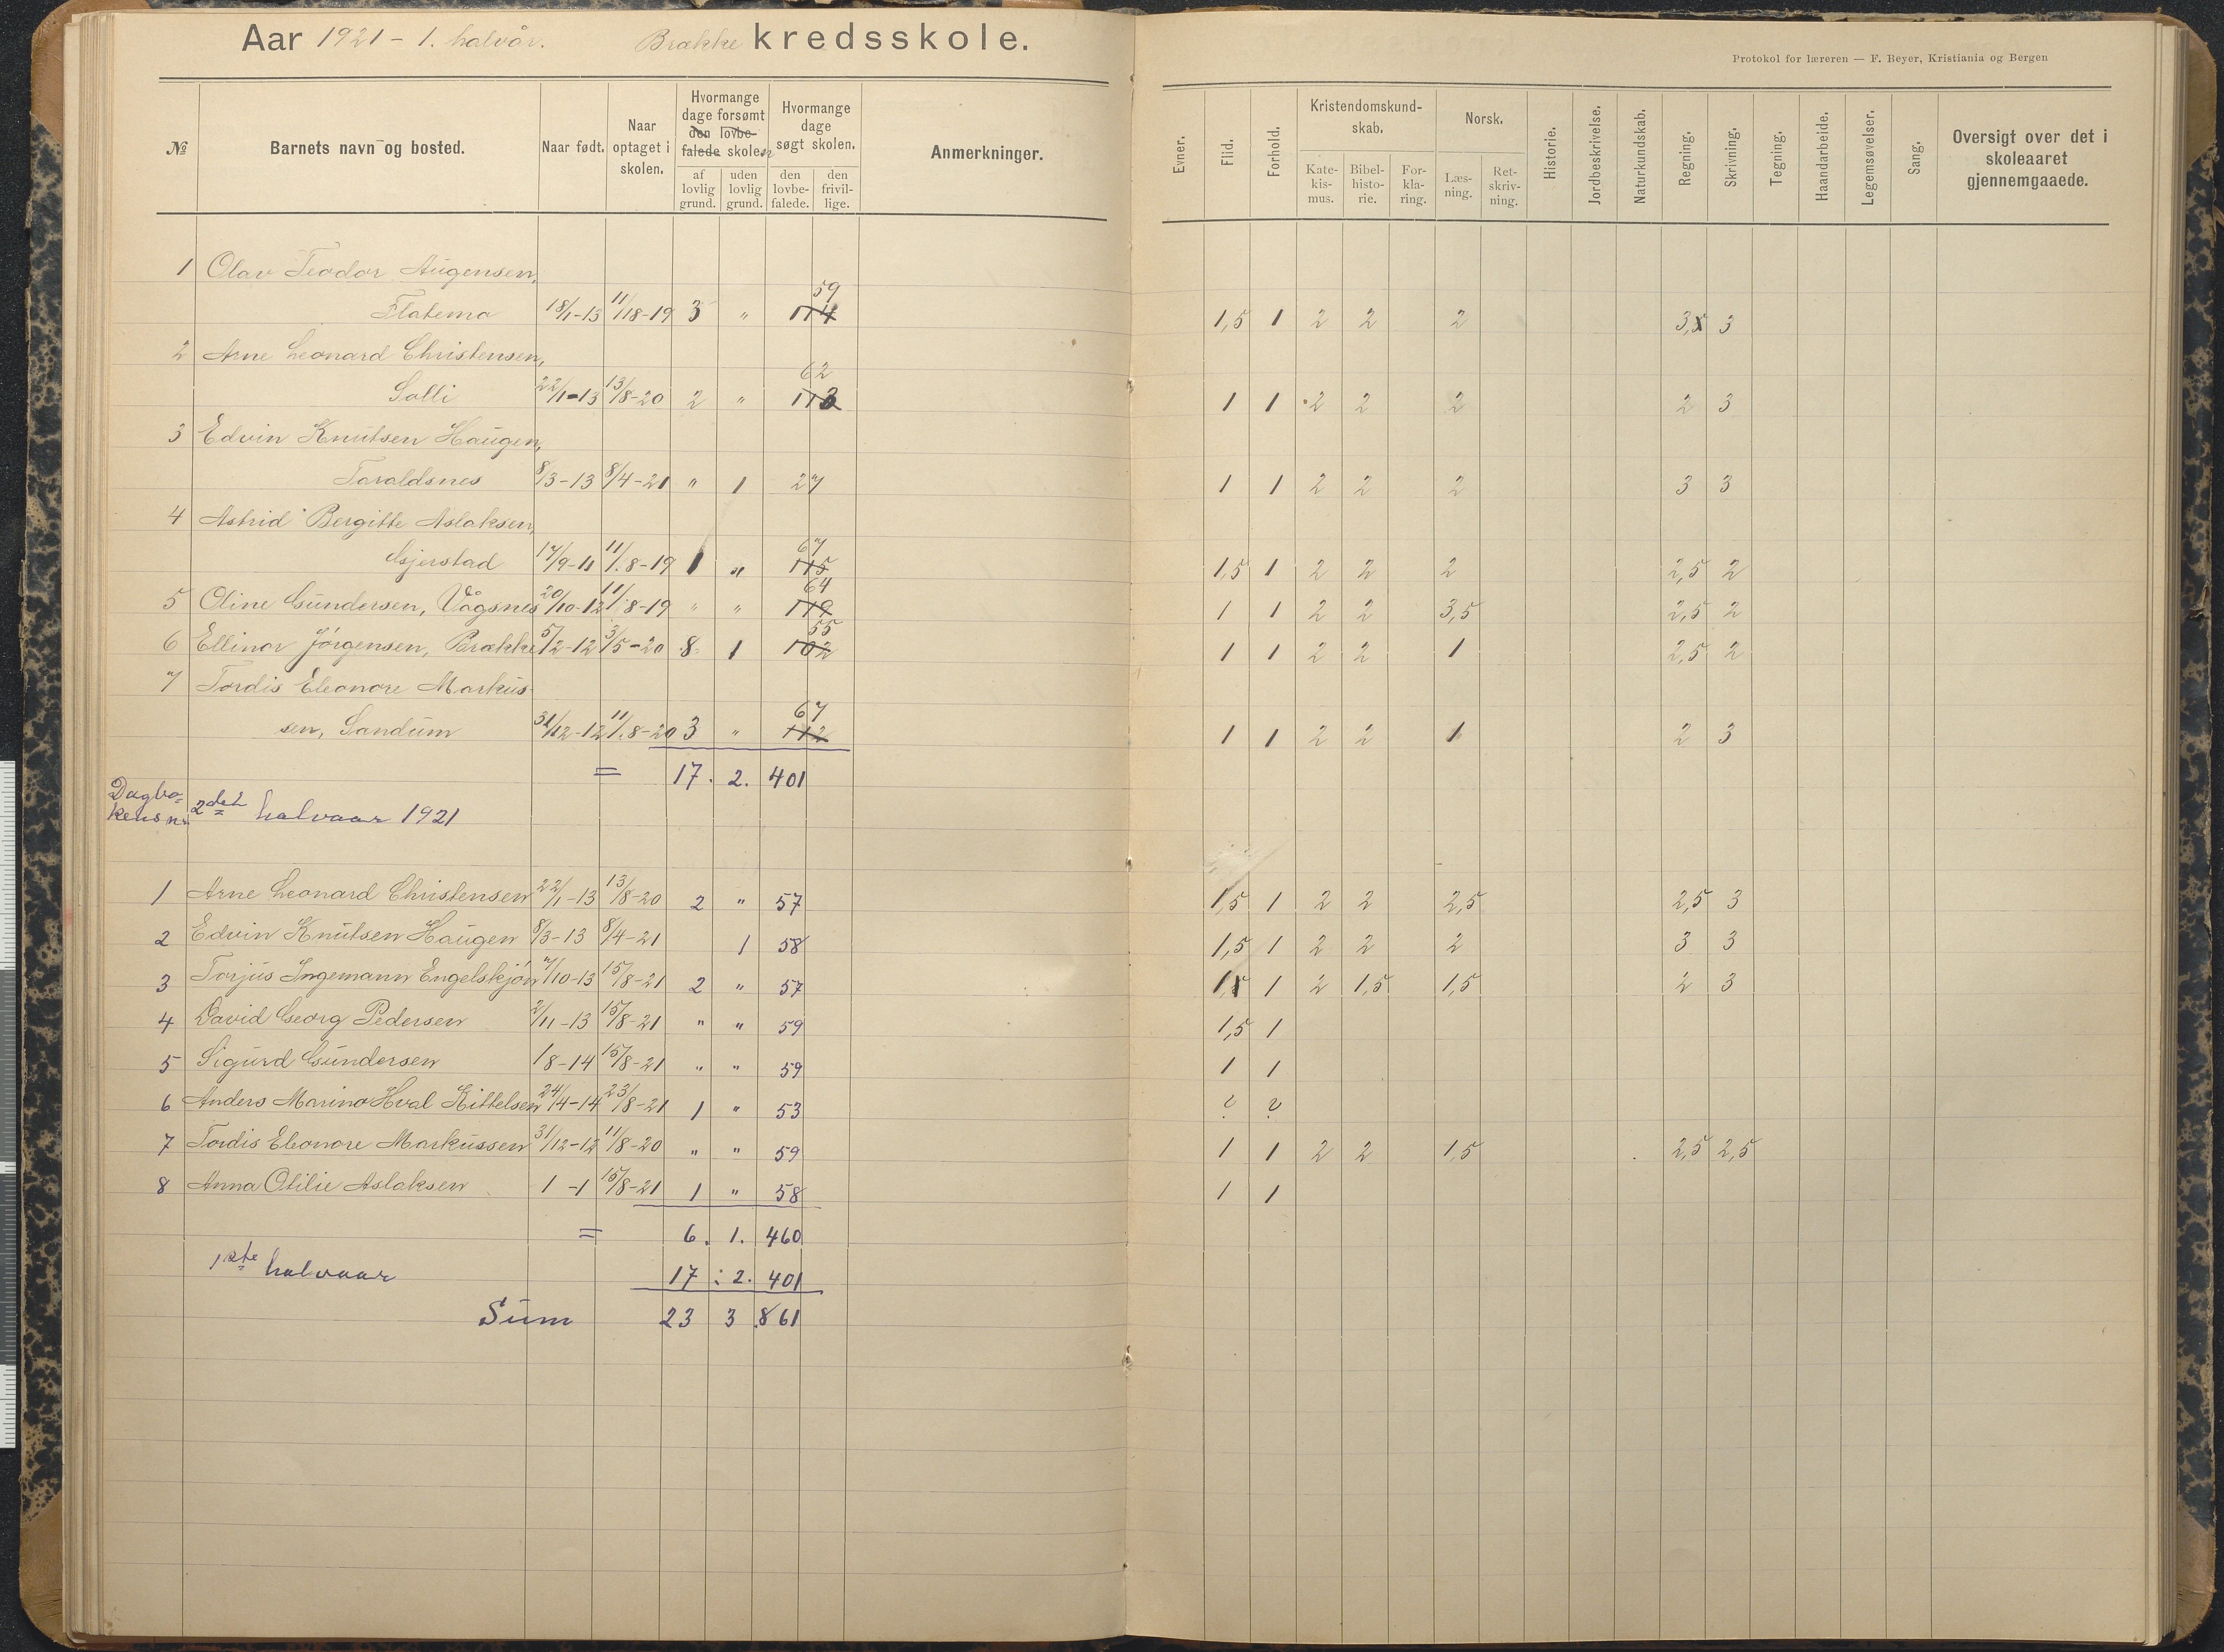 Aar 1921 - 1. halvår. Brække kredsskole.
Protokol for læreren — F. Beyer, Kristiania og Bergen
№ Barnets navn og bosted. Naar født. Naar optaget i skolen. Hvormange dage forsømt den lovbefalede skolen af lovlig grund. uden lovlig grund. Hvormange dage søgt skolen. den lovbefalede. den frivillige. Anmerkninger.
Evner. Flid. Forhold. Kristendomskundskab. Katekismus. Bibelhistorie. Forklaring. Norsk. Læsning. Retskrivning. Historie. Jordbeskrivelse. Naturkundskab. Regning. Skrivning. Tegning. Haandarbeide. Legemsøvelser. Sang. Oversigt over det i skoleaaret gjennemgaaede.
1 Olav Teodor Augensen,
59
Flatemo 18/1-13 11/18-19 3 " 114 1,5 1 2 2 2 3,5 3
2 Arne Leonard Christensen,
62
Solli 22/1-13 13/8-20 2 " 113 1 1 2 2 2 2 3
3 Edvin Knutsen Haugen,
Taraldsnes 8/3-13 8/4-21 " 1 27 1 1 2 2 2 3 3
4 Astrid Bergitte Aslaksen,
67
Gjerstad 17/9-11 11/8-19 1 " 115 1,5 1 2 2 2 2,5 2
64
5 Oline Gundersen, Vågsnes 20/10-12 11/8-19 " " 119 1 1 2 2 3,5 2,5 2
55
6 Ellinor Jörgensen, Brække 5/2-12 3/5-20 8 1 102 1 1 2 2 1 2,5 2
7 Tordis Eleonore Markus-
67
sen, Sandum 31/12-12 11/8-20 3 " 112 1 1 2 2 1 2 3
= 17. 2. 401
Dagbo-
kens nr. 2det halvaar 1921
1 Arne Leonard Christensen 22/1-13 13/8-20 2 " 57 1,5 1 2 2 2,5 2,5 3
2 Edvin Knutsen Haugen 8/3-13 8/4-21 1 58 1,5 1 2 2 2 3 3
3 Torjus Ingemann Engelskjön 7/10-13 15/8-21 2 " 57 1,5 1 2 1,5 1,5 2 3
4 David Georg Pedersen 2/11-13 15/8-21 " " 59 1,5 1
5 Sigurd Gundersen 18-14 15/8-21 " " 59 1 1
6 Anders Marino Hval Kittelsen 24/4-14 23/8-21 1 " 53 ? ?
7 Tordis Eleonore Markussen 31/12-12 11/8-20 " " 59 1 1 2 2 1,5 2,5 2,5
8 Anna Otilie Aslaksen 1 -1 15/8-21 1 " 58 1 1
= 6. 1. 460
1ste halvaar 17 : 2. 401
Sum 23 3 861